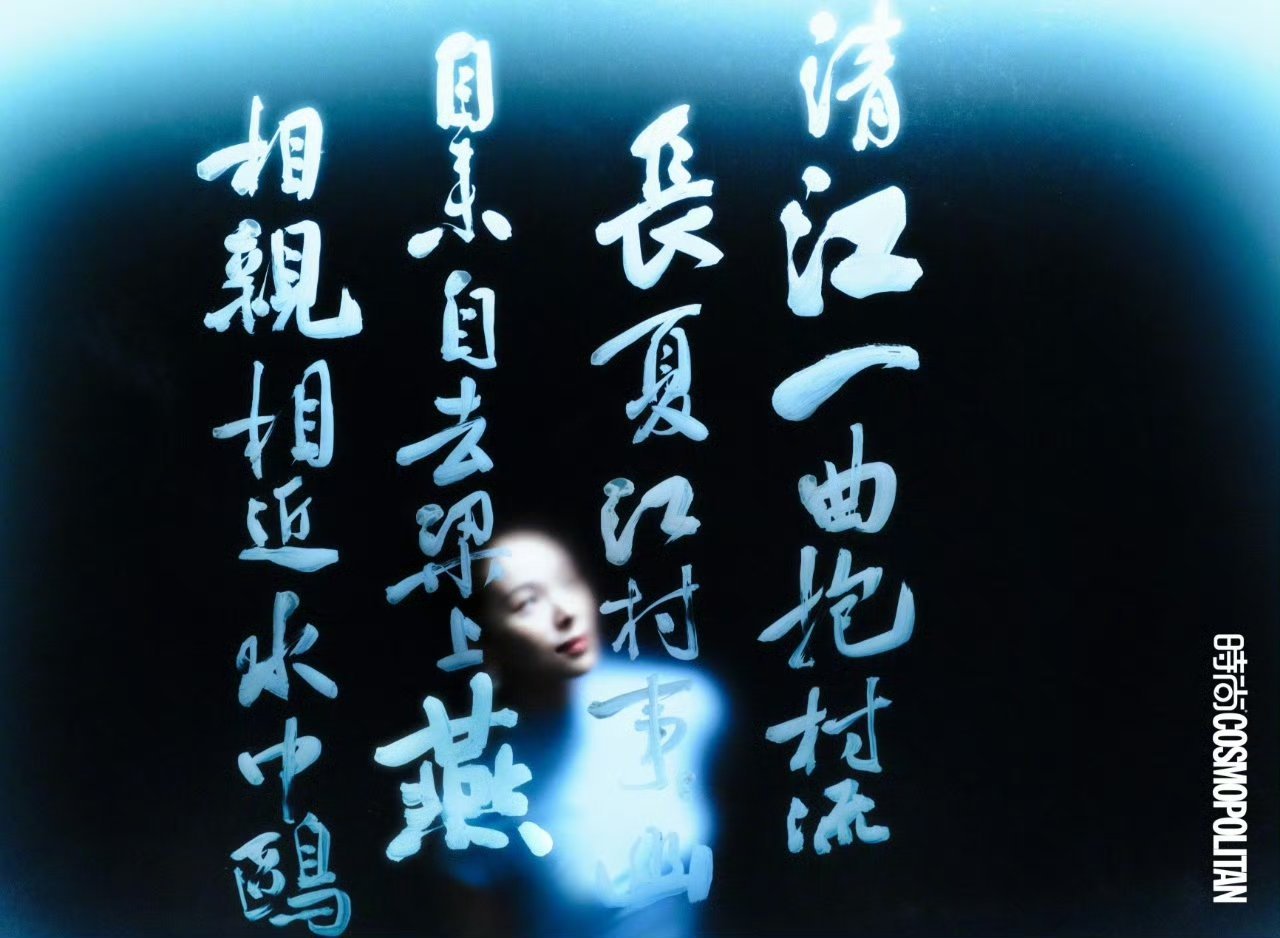 清江一曲抱村流
長夏江村事〻幽
自来自去梁上燕
相親相近水中鷗
時尚COSMOPOLITAN